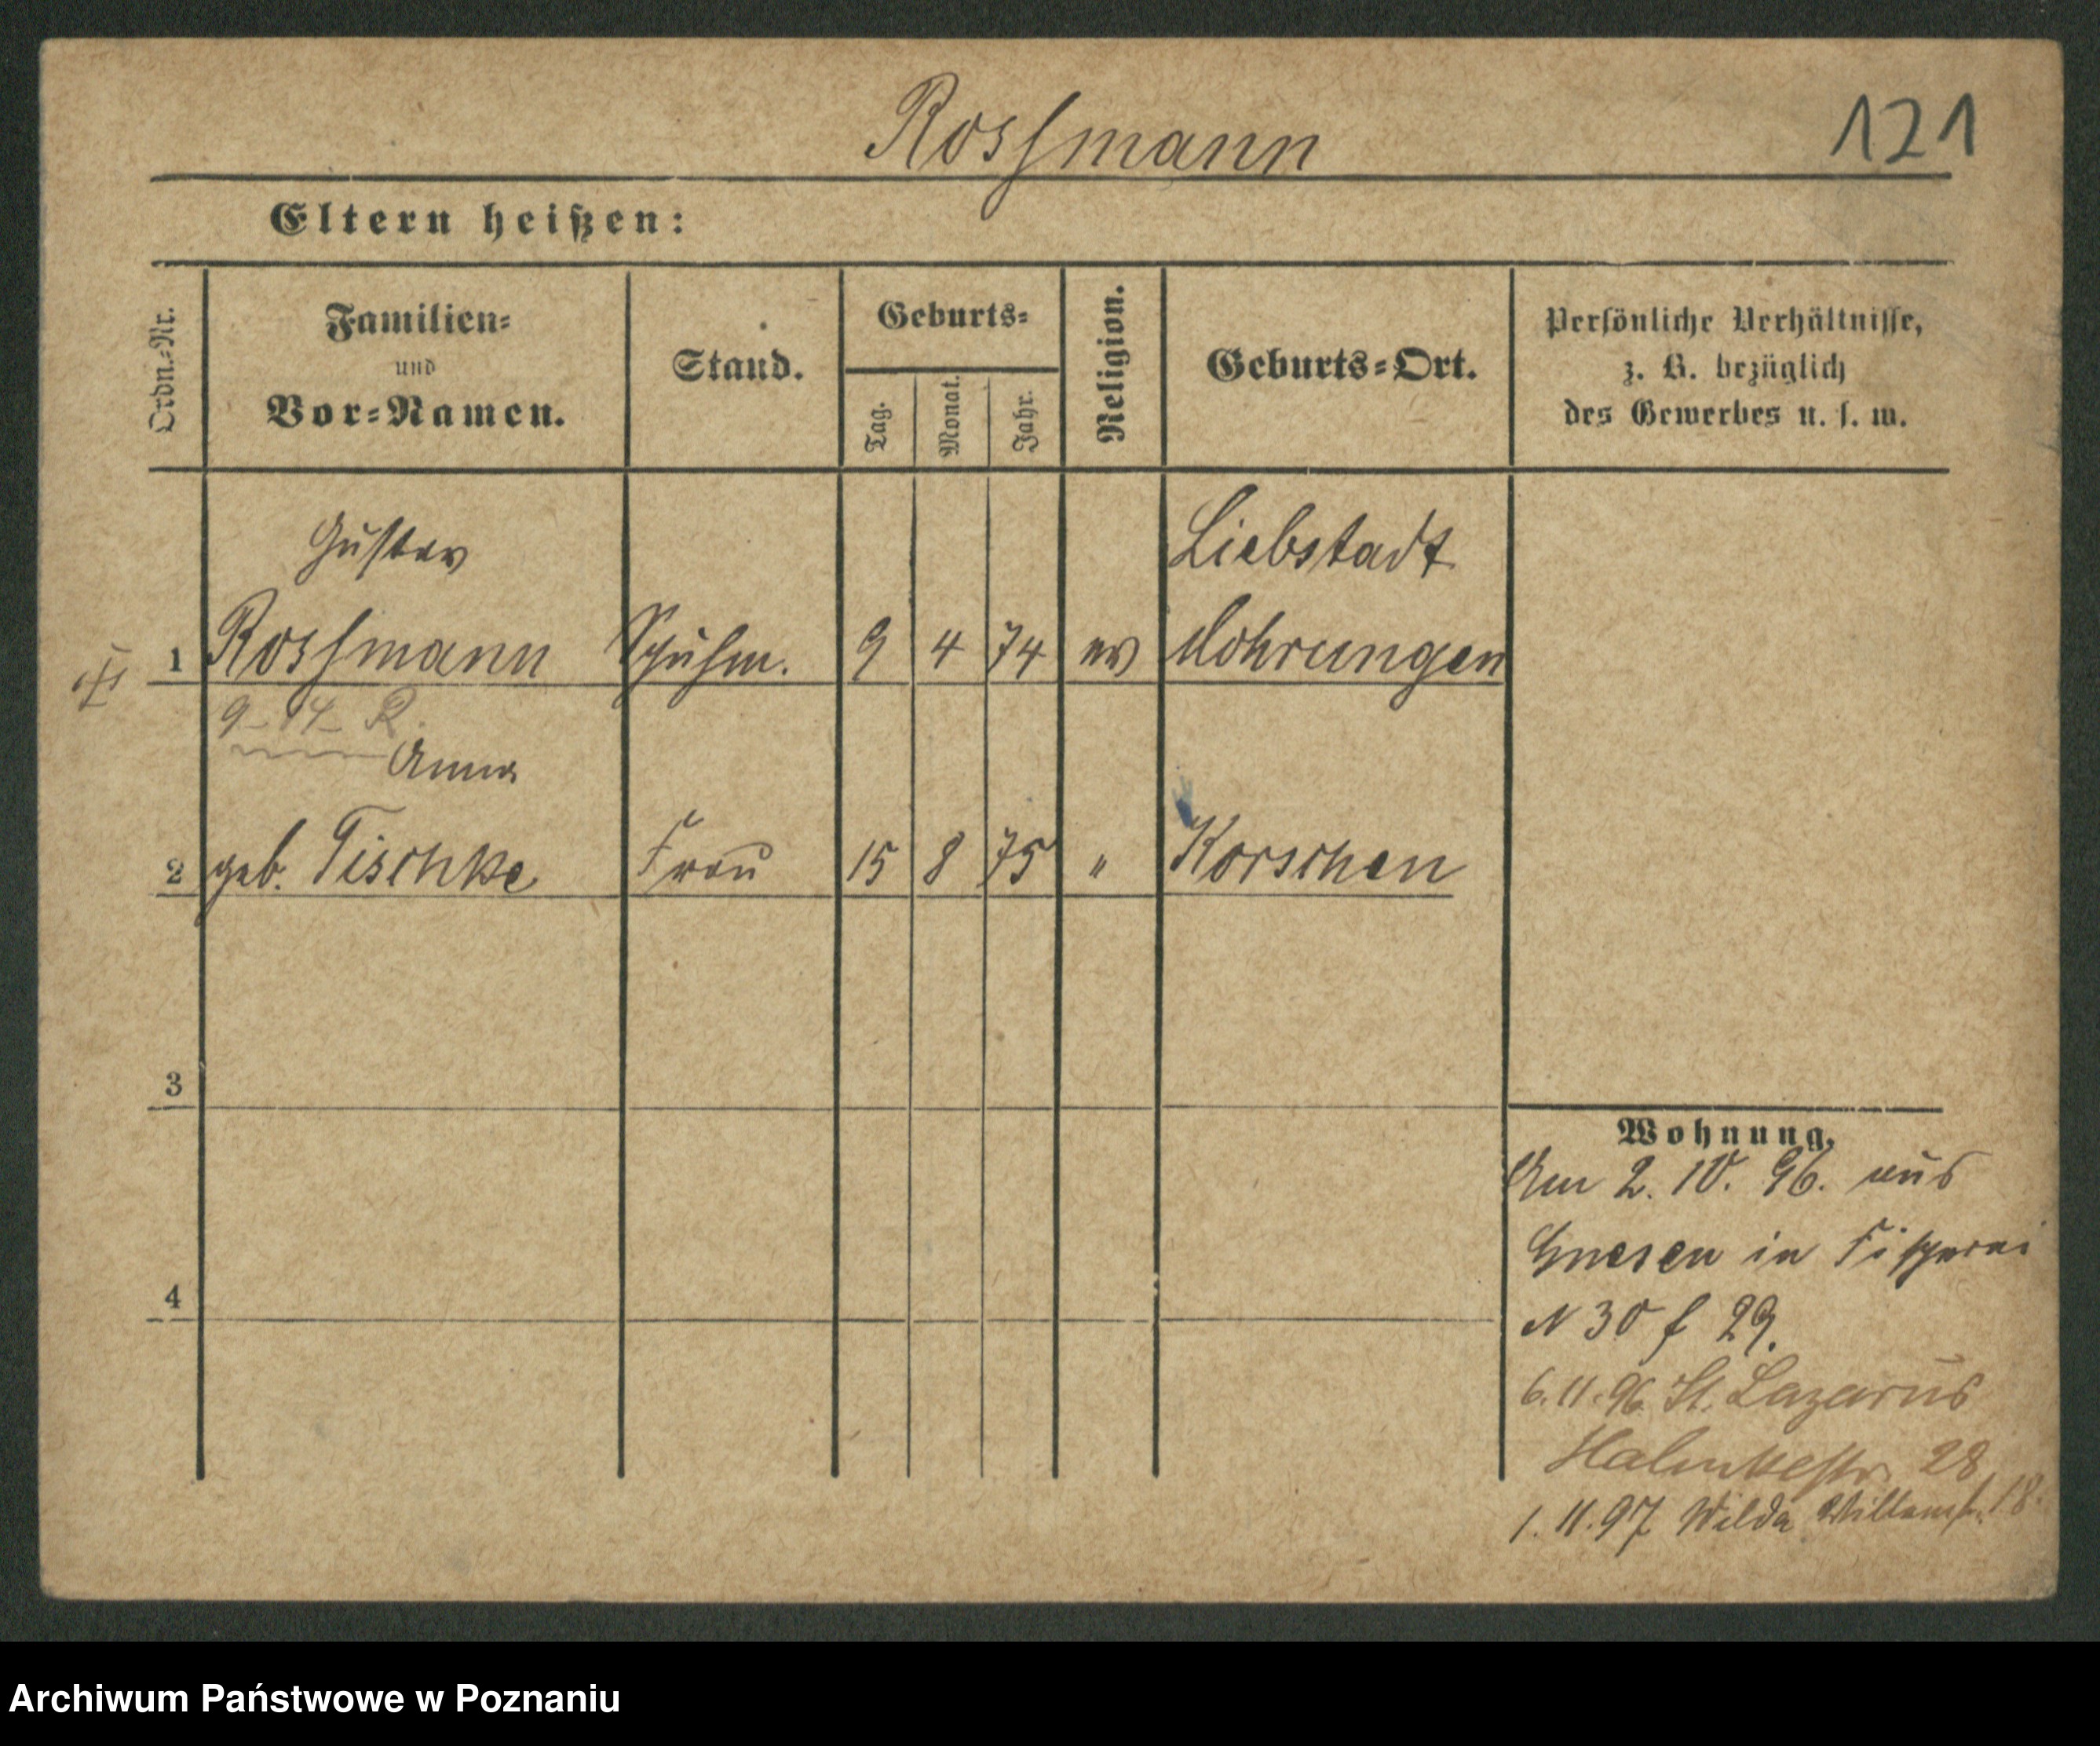 Rossmann
121
Eltern heißen:
Ordn.-Nr.
Familien-
und
Vor-Namen.
Stand.
Geburts-
Tag.
Monat.
Jahr.
Religion.
Geburts-Ort.
Persönliche Verhältnisse,
z. B. bezüglich
des Gewerbes u. s. w.
Gustav
Liebstadt
1 Rossmann Schuhm. 9 4 74 ev Mohrungen
Anna
2 geb. Tischke Frau 15 8 75 " Korschen
3
4
Wohnung,
Am 2. 10. 96. aus
Gnesen in Fischerei
N 30 f 29.
6. 11. 96. St. Lazarus
28
1. 11. 97 Wilda 18.
Archiwum Państwowe w Poznaniu